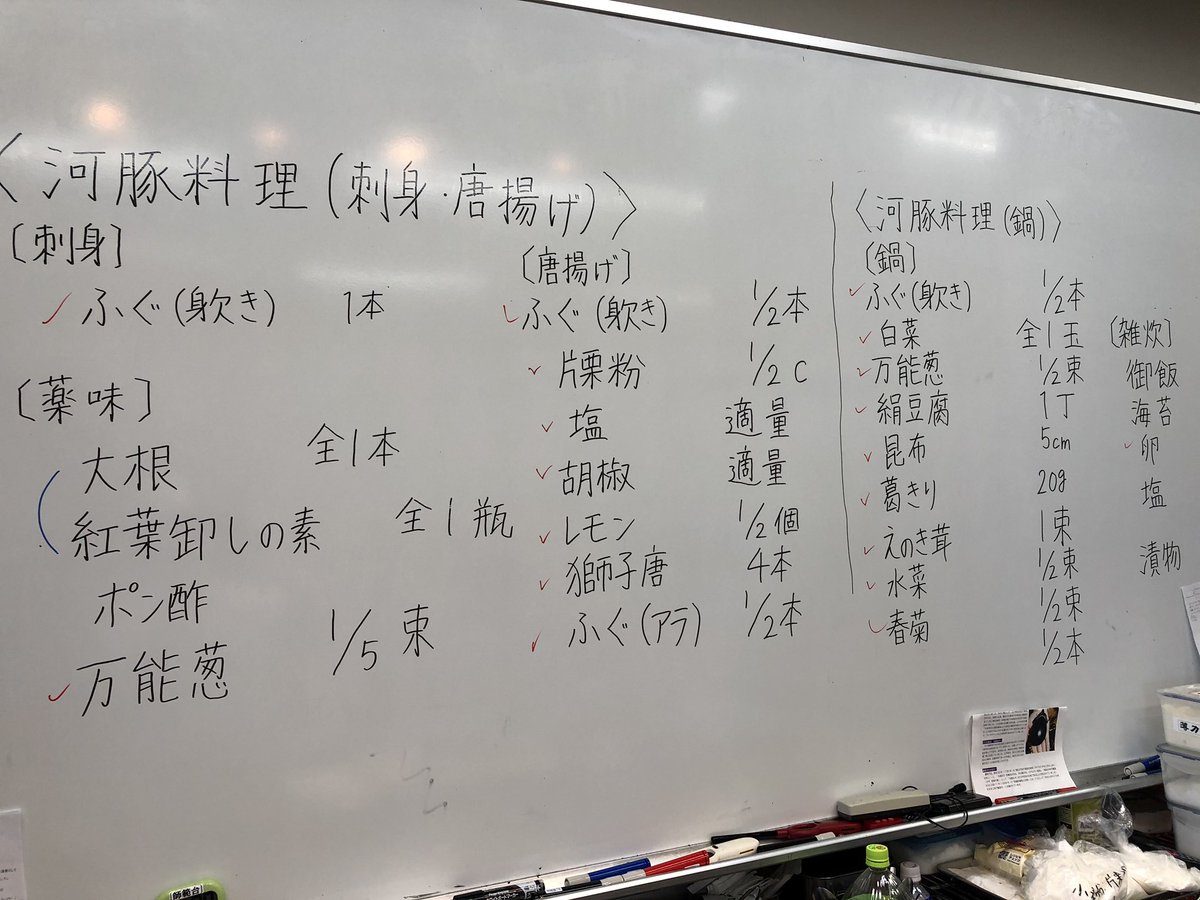 〈河豚料理(刺身・唐揚げ)〉
〔刺身〕
ふぐ(身欠き) 1本
〔薬味〕
大根 全1本
紅葉卸しの素 全1瓶
ポン酢
万能葱 1/5束
〔唐揚げ〕
ふぐ(身欠き) 1/2本
片栗粉 1/2c
塩 適量
胡椒 適量
レモン 1/2個
獅子唐 4本
ふぐ(アラ) 1/2本
〈河豚料理(鍋)〉
〔鍋〕
ふぐ(身欠き) 1/2本
白菜 全1玉
万能葱 1/2束
絹豆腐 1丁
昆布 5cm
葛きり 20g
えのき茸 1束
水菜 1/2束
春菊 1/2束
1/2本
〔雑炊〕
御飯
海苔
卵
塩
漬物
師範台
薄力